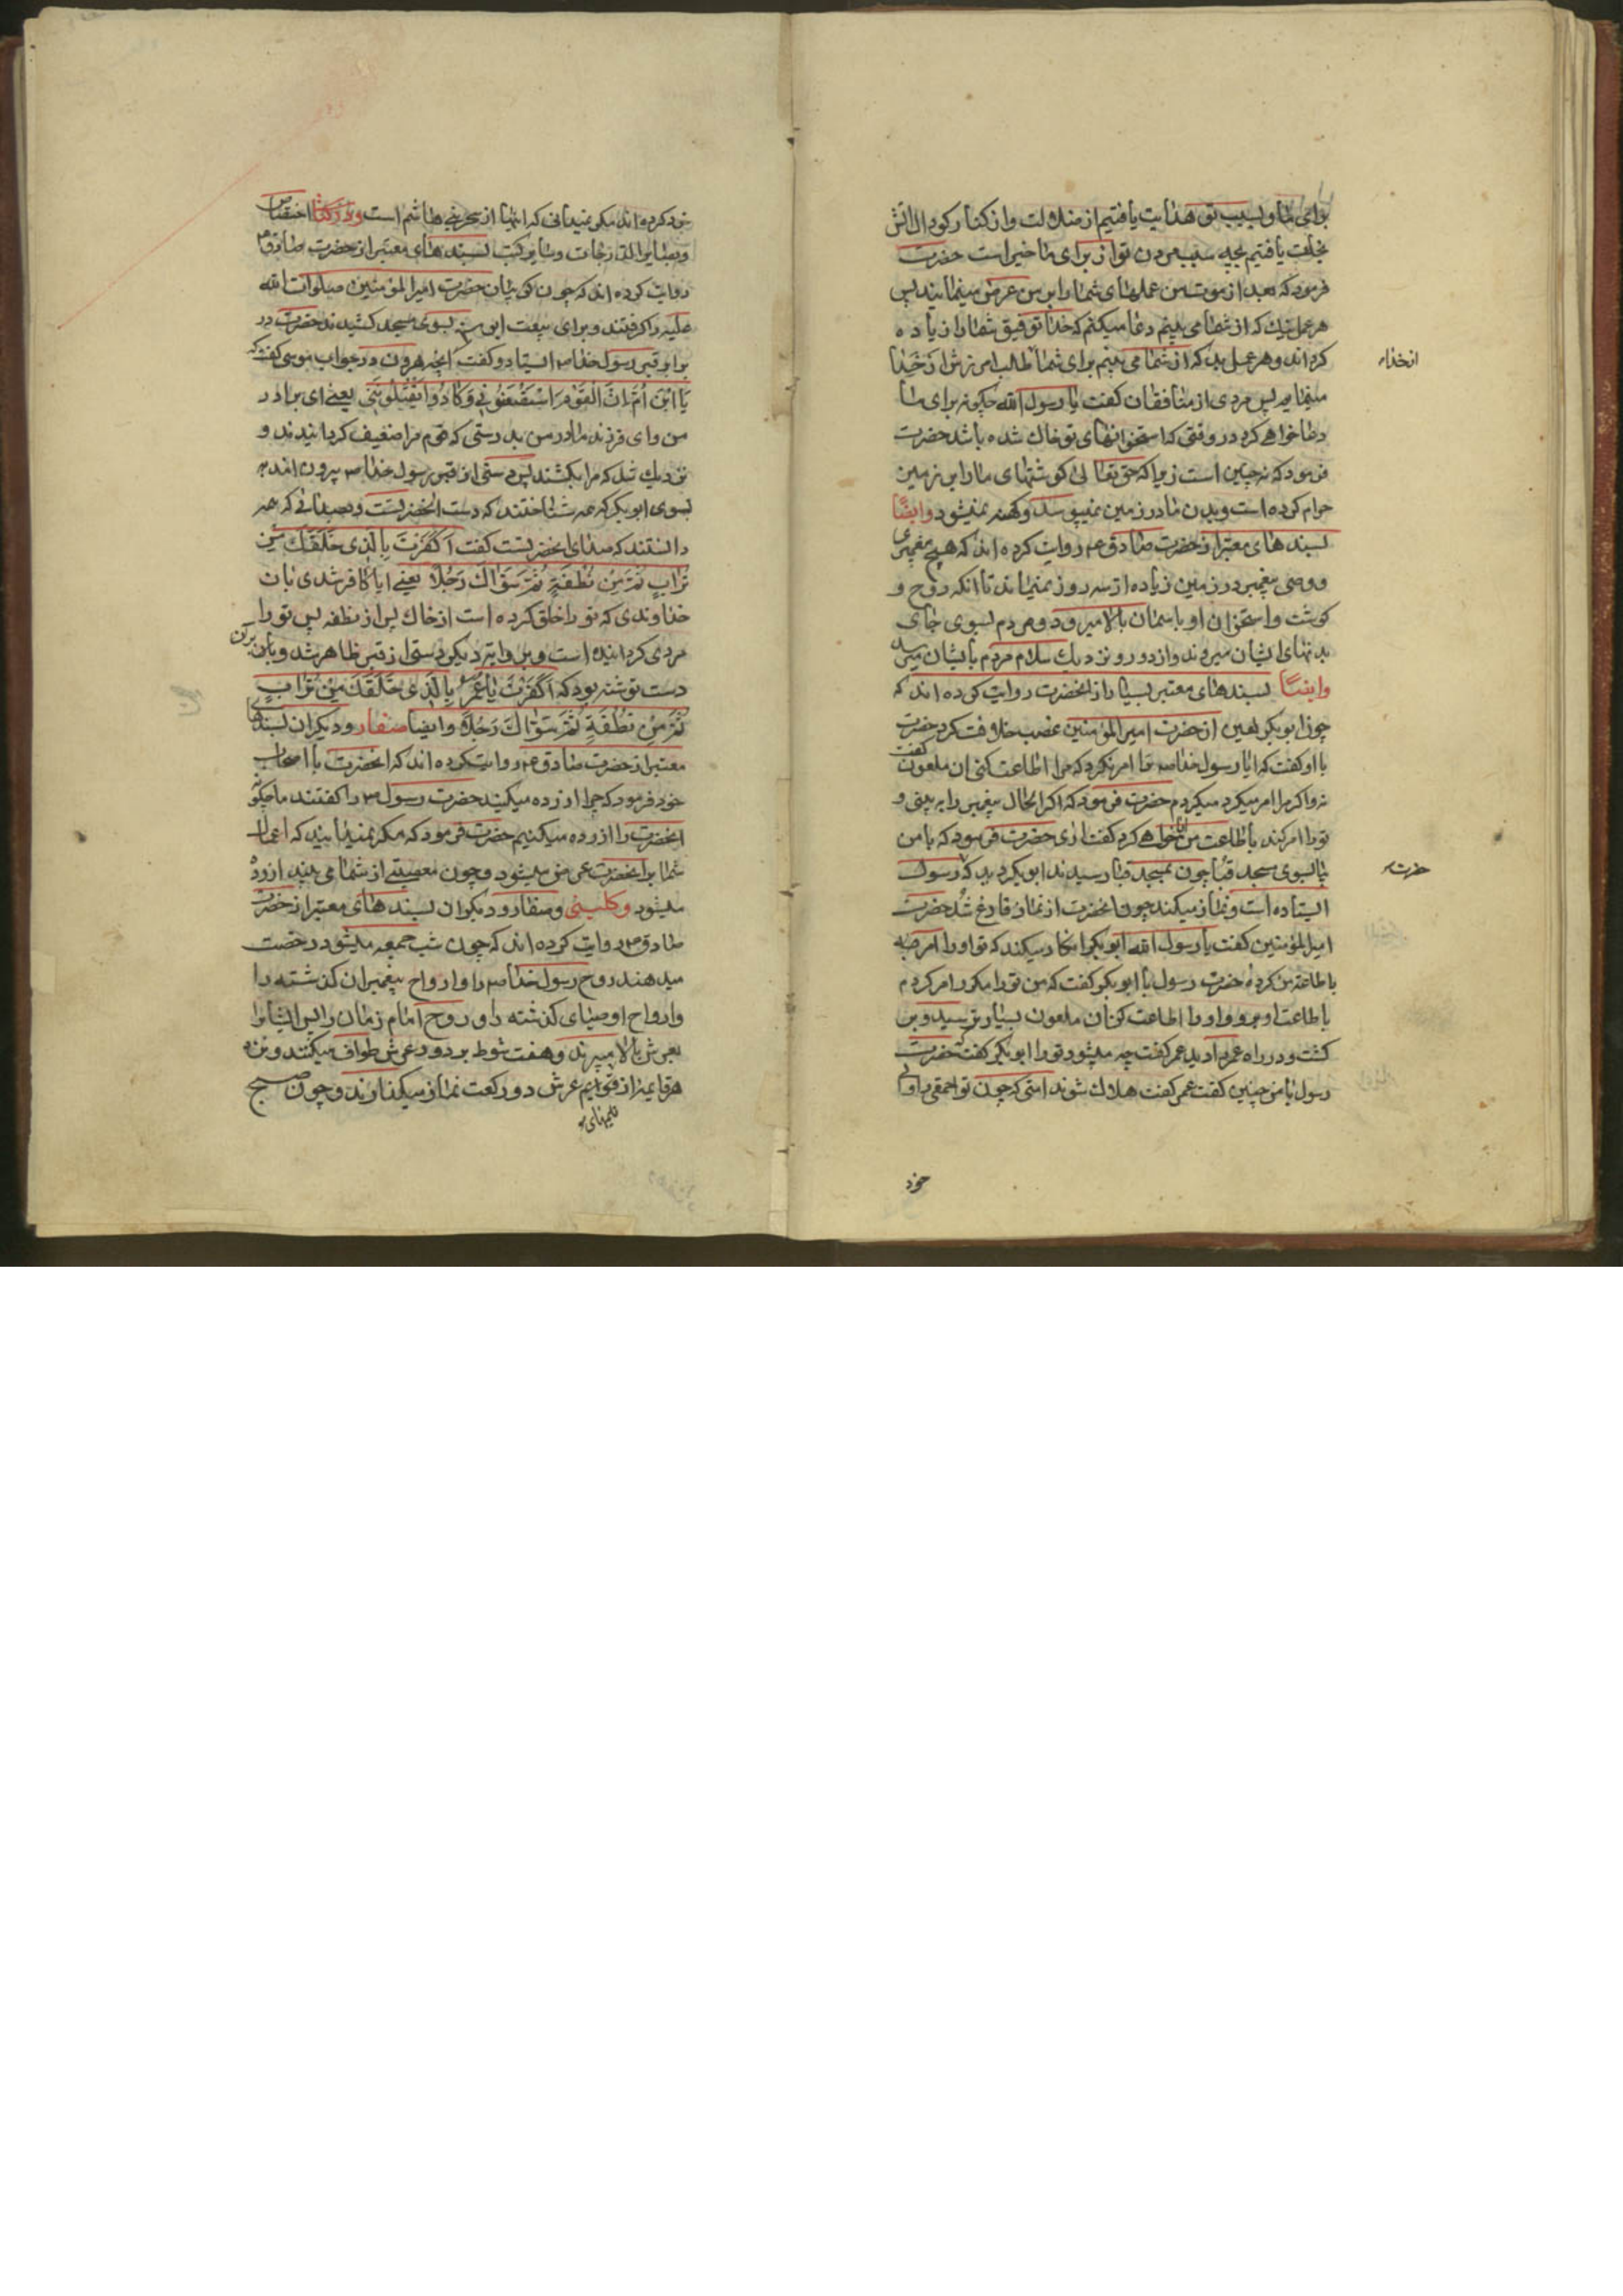 برای ما و بسبب تو هدایت یافتیم از ضلالت و از کنار کودال اتش
نجات یافتیم بچه سبب مردن تو از برای ما خیر است حضرت
فرمود که بعد از موت من عملهای شما را بر من عرض مینمایند پس
هر عمل نیک که از شما می بینم دعا میکنم که خدا توفیق شما را زیاده
کرداند و هر عمل بد که از شما می بینم برای شما طلب امرزش از خدا
مینمایم پس مردی از منافقان کفت یا رسول الله چکونه برای ما
دعا خواهی کرد در وقتی که استخوانهای تو خاک شده باشد حضرت
فرمود که نه چنین است زیرا که حق تعالی کوشتهای ما را بر زمین
حرام کرده است و بدن ما در زمین نمیپوسد و کهنه نمیشود وایضا
بسندهای معتبر از حضرت صادق ع روایت کرده اند که هیچ پیغمبری
و وصی پیغمبر در زمین زیاده از سه روز نمیماند تا انکه روح و
کوشت و استخوان او باسمان بالا میرود و مردم بسوی جای
بدنهای ایشان میروند و از دور و نزدیک سلام مردم بایشان میرسد
وایضا بسندهای معتبر بسیار از انحضرت روایت کرده اند که
چون ابو بکر لعین از حضرت امیر المؤمنین غصب خلافت کرد حضرت
با او کفت که ایا رسول خدا ص ترا امر نکرد که مرا اطاعت کنی ان ملعون کفت
نه و اکر مرا امر میکرد میکردم حضرت فرمود که اکر الحال پیغمبر را به بینی و
تو را امر کند باطاعت من ایا خواهی کرد کفت اری حضرت فرمود که با من
بیا بسوی مسجد قبا چون بمسجد قبا رسیدند ابو بکر دید که رسول
ایستاده است و نماز میکند چون انحضرت از نماز فارغ شد حضرت
امیر المؤمنین کفت یا رسول الله ابو بکر انکار میکند که تو او را امر
باطاعت من کرده حضرت رسول با ابو بکر کفت که من تو را مکرر امر کردم
باطاعت او برو و او را اطاعت کن ان ملعون بسیار ترسید و بر
کشت و در راه عمر را دید عمر کفت چه میشود تو را ابو بکر کفت که حضرت
رسول با من چنین کفت عمر کفت هلاک شوند امتی که چون تو احمقی را والی
از خدا
حضرت
خود
خود کرده اند مکر نمیدانی که اینها از سحر بنی هاشم است و در کتاب اختصاص
و بصایر الدرجات و سایر کتب بسندهای معتبر از حضرت صادق ع
روایت کرده اند که چون کریبان حضرت امیر المؤمنین صلوات الله
علیه را کرفتند و برای بیعت ابو بکر بسوی مسجد کشیدند حضرت در
برابر قبر رسول خدا ص ایستاد و کفت انچه هرون در جواب موسی کفت که
یَا ابْنَ اُمَّ اِنَّ الْقَوْمَ اسْتَضْعَفُونِی وَکَادُوا یَقْتُلُونَنِی یعنی ای برادر
من و ای فرزند مادر من بدرستی که قوم مرا ضعیف کردانیدند و
نزدیک شد که مرا بکشند پس دستی از قبر رسول خدا ص بیرون امد
بسوی ابو بکر که همه شناختند که دست انحضرتست و صدائی که همه
دانستند که صدای انحضرتست کفت اَکَفَرْتَ بِالَّذِی خَلَقَکَ مِنْ
تُرَابٍ ثُمَّ مِنْ نُطْفَةٍ ثُمَّ سَوَّاکَ رَجُلًا یعنی ایا کافر شدی بان
خداوندی که تو را خلق کرده است از خاک پس از نطفه پس تو را
مردی کردانیده است و بروایت دیکر دستی از قبر ظاهر شد و بران
دست نوشته بود که اَکَفَرْتَ یَا عُمَرُ بِالَّذِی خَلَقَکَ مِنْ تُرَابٍ
ثُمَّ مِنْ نُطْفَةٍ ثُمَّ سَوَّاکَ رَجُلًا وایضا صفار و دیکران بسندهای
معتبر از حضرت صادق ع روایت کرده اند که انحضرت با اصحاب
خود فرمود که چرا ازرده میکنید حضرت رسول ص را کفتند ما چکونه
انحضرت را ازرده میکنیم حضرت فرمود که مکر نمیدانید که اعمال
شما بر انحضرت عرض میشود و چون معصیتی از شما می بیند ازرده
میشود وکلینی و صفار و دیکران بسندهای معتبر از حضرت
صادق ع روایت کرده اند که چون شب جمعه میشود رخصت
میدهند روح رسول خدا ص را و ارواح پیغمبران کذشته را
و ارواح اوصیای کذشته را و روح امام زمان را پس ایشانرا
بعرش بالا میبرند و هفت شوط بر دور عرش طواف میکنند و نزد
هر قایمه از قوایم عرش دو رکعت نماز میکذارند و چون صبح